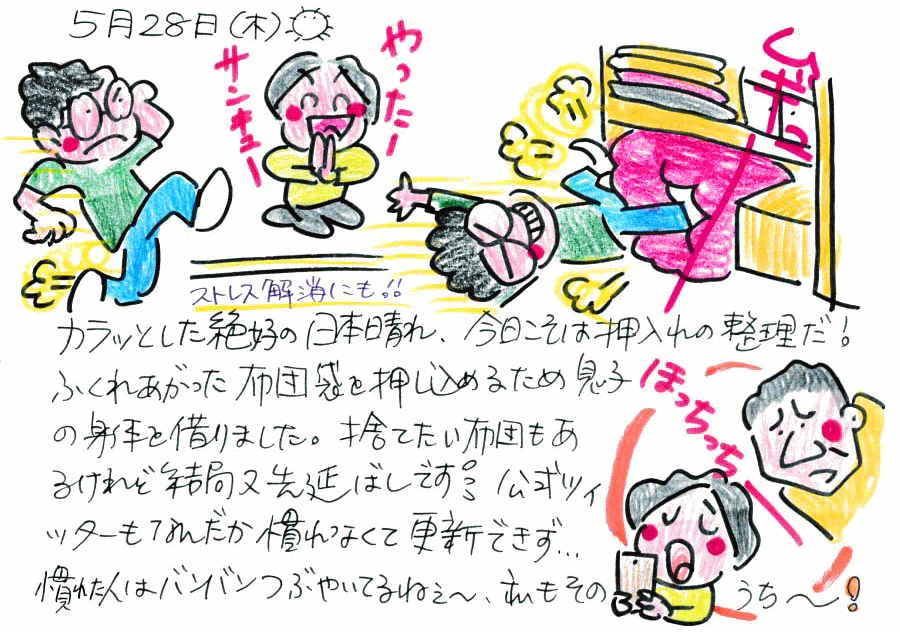 5月28日(木)
やったー
サンキュー
ストレス解消にも!!
カラッとした絶好の日本晴れ、今日こそは押入れの整理だ!
ふくれあがった布団袋を押し込めるため息子
の身体を借りました。捨てたい布団もあ
るけれど結局又先延ばしです。公式ツイ
ッターもなんだか慣れなくて更新できず…
慣れた人はバンバンつぶやいてるねぇ〜、私もその
うち〜!
ほっちっち